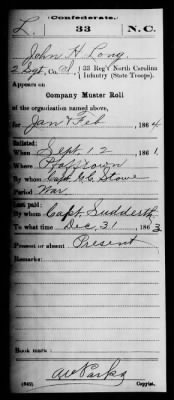 Confederate.
L. 33 N.C.
John H. Long
2 Sgt, Co. 33 Reg't North Carolina
Infantry (State Troops).
Appears on
Company Muster Roll
of the organization named above,
for Jan & Feb, 1864
Enlisted:
When Sept. 12, 1861.
Where
By whom Capt. Stowe
Period War
Last paid:
By whom Capt. Sudderth
To what time Dec. 31, 1863
Present or absent Present
Remarks:
Book mark:
Parks
(642) Copyist.